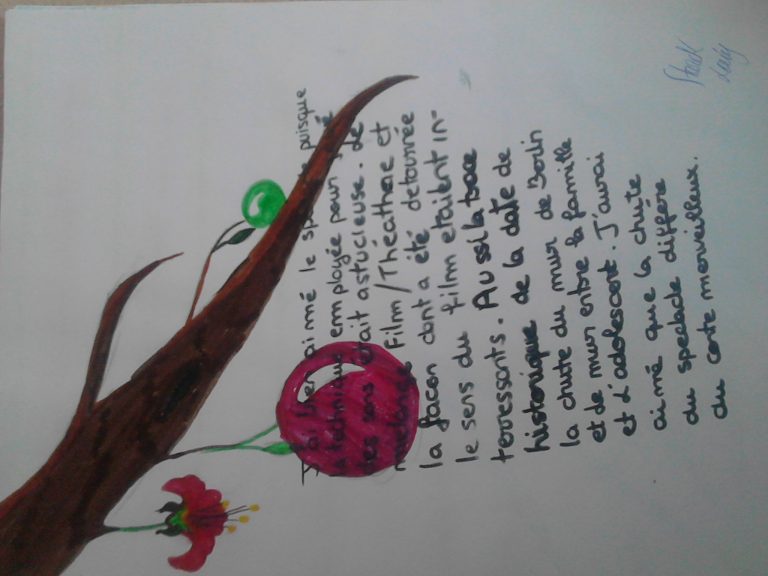 J'ai bien aimé le spectacle puisque
la technique employée pour
des sons était astucieuse. Le
mélange Film/Théathre et
la façon dont a été détournée
le sens du film étaient in-
terressants. Aussi la trace
historique de la date de
la chute du mur de Berlin
et de mur entre la famille
et l'adolescent. J'aurai
aimé que la chute
du spectacle diffère
du conte merveilleux.